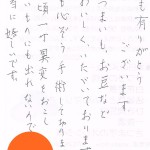 も有りがとう
ございます
つまいも、お豆など
おいしくいただいております
も心ぞう手術してあります
頃一寸異変をおこし
いものにも出れないので
当に嬉しいです。